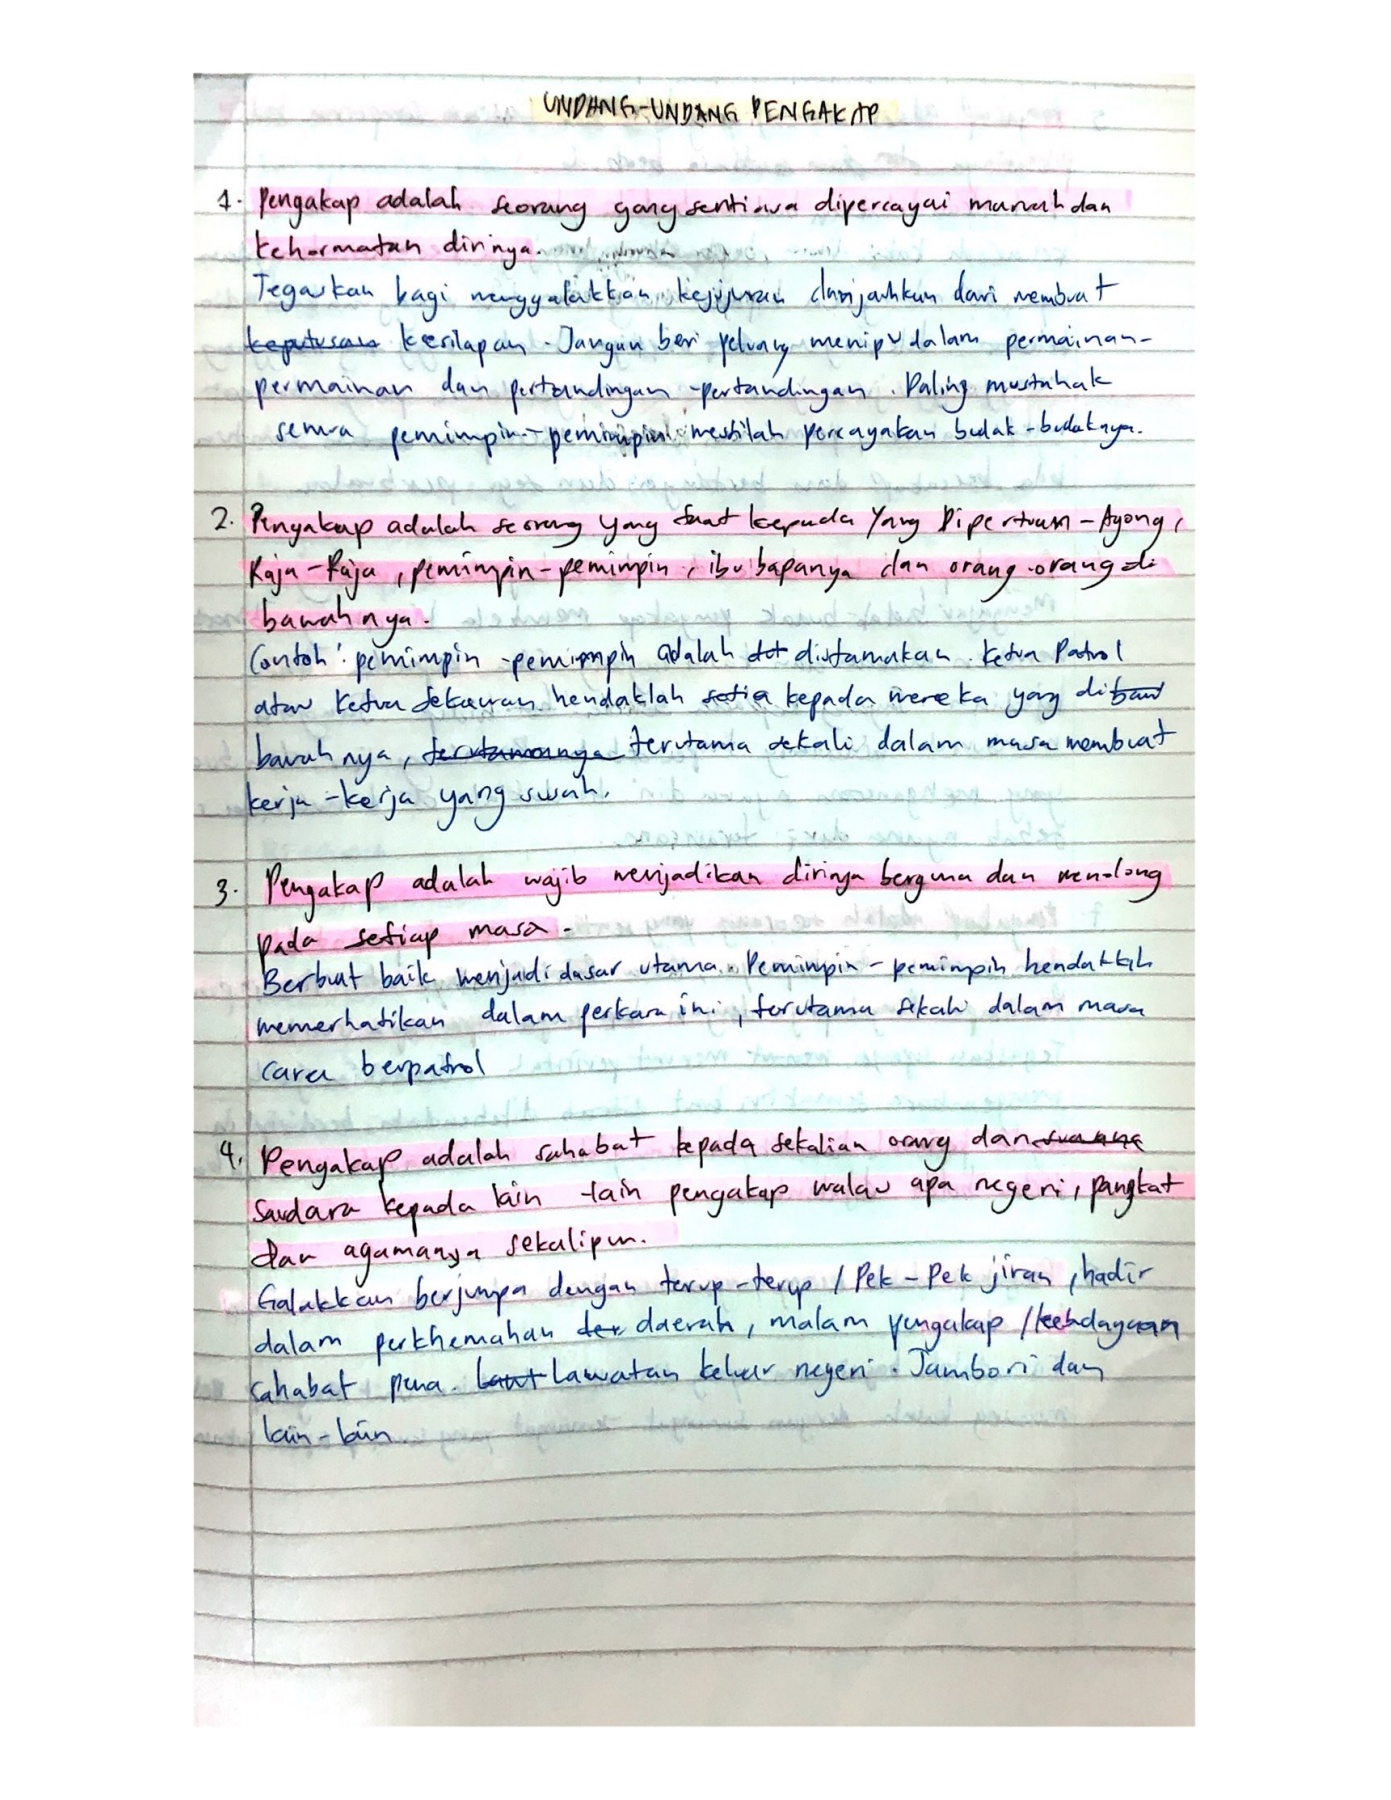 UNDANG-UNDANG PENGAKAP
1. Pengakap adalah seorang yang sentiasa dipercayai maruah dan
kehormatan dirinya.
Tegaskan bagi menggalakkan kejujuran dan jauhkan dari membuat
keputusan kesilapan. Jangan beri peluang menipu dalam permainan-
permainan dan pertandingan-pertandingan. Paling mustahak
semua pemimpin-pemimpin mestilah percayakan budak-budaknya.
2. Pengakap adalah seorang yang taat kepada Yang Dipertuan-Agong,
Raja-Raja, pemimpin-pemimpin, ibu bapanya dan orang-orang di
bawahnya.
Contoh: pemimpin-pemimpin adalah diutamakan. Ketua Patrol
atau Ketua Sekawan hendaklah setia kepada mereka yang di
bawahnya, terutamanya terutama sekali dalam masa membuat
kerja-kerja yang susah.
3. Pengakap adalah wajib menjadikan dirinya berguna dan menolong
pada setiap masa.
Berbuat baik menjadi dasar utama. Pemimpin-pemimpin hendaklah
memerhatikan dalam perkara ini, terutama sekali dalam masa
cara berpatrol
4. Pengakap adalah sahabat kepada sekalian orang dan
saudara kepada lain-lain pengakap walau apa negeri, pangkat
dan agamanya sekalipun.
Galakkan berjumpa dengan terup-terup / Pek-Pek jiran, hadir
dalam perkhemahan daerah, malam pengakap /
sahabat pena. Lawatan keluar negeri. Jambori dan
lain-lain.